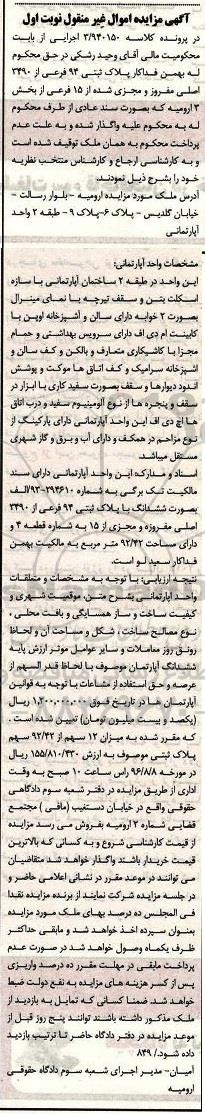 آگهی مزایده اموال غیر منقول نوبت اول
در پرونده کلاسه ۳/۹۴۰۱۵۰ اجرایی از بابت
محکومیت مالی آقای وحید رشکی در حق محکوم
له بهمن فداکار پلاک ثبتی ۹۴ فرعی از ۳۴۹۰
اصلی مفروز و مجزی شده از ۱۵ فرعی از بخش
۳ ارومیه که بصورت سند عادی از طرف محکوم
له به محکوم علیه واگذار شده و به علت عدم
پرداخت محکوم به همان ملک توقیف شده است
و به کارشناسی ارجاع و کارشناس منتخب نظریه
خود را بشرح ذیل نمودند.
آدرس ملک مورد مزایده ارومیه - بلوار رسالت -
خیابان گلدیس - پلاک ۶-پلاک ۹ - طبقه ۲ واحد
آپارتمانی
مشخصات واحد آپارتمانی:
این واحد در طبقه ۲ ساختمان آپارتمانی با سازه
اسکلت بتن و سقف تیرچه با نمای مینرال
بصورت ۲ خوابه دارای سالن و آشپزخانه اوپن با
کابینت ام دی اف دارای سرویس بهداشتی و حمام
مجزا با کاشیکاری متعارف و بالکن و کف سالن و
آشپزخانه سرامیک و کف اتاق ها موکت و پوشش
اندود دیوارها و سقف بصورت سفید کاری با ابزار در
سقف و پنجره ها از نوع آلومینیوم سفید و درب اتاق
ها اچ دی اف این واحد آپارتمانی دارای پارکینگ از
نوع مزاحم در همکف و دارای آب و برق و گاز شهری
مستقل میباشد.
اسناد و مدارک: این واحد آپارتمانی دارای سند
مالکیت تک برگی به شماره ۳۹۴۶۱۰-۹۳/الف
بصورت ششدانگ با پلاک ثبتی ۹۴ فرعی از ۳۴۹۰
اصلی مفروزه و مجزی از ۱۵ به شماره قطعه ۴ و
دارای مساحت ۹۲/۴۲ متر مربع به مالکیت بهمن
فداکار سعید لو است.
نتیجه ارزیابی: با توجه به مشخصات و متعلقات
واحد آپارتمانی بشرح متن، موقعیت شهری و
کیفیت ساخت و ساز همسایگی و بافت محلی ،
نوع مصالح ساخت ، شکل و مساحت آن و لحاظ
رونق روز معاملات و سایر عوامل موثر ارزش پایه
ششدانگ آپارتمان موصوف با لحاظ قدر السهم از
عرصه و حق استفاده از مشاعات با توجه به قوانین
آپارتمان ها در تاریخ فوق ۱.۲۰۰.۰۰۰.۰۰۰ ریال
(یکصد و بیست میلیون تومان) تعیین شده است .
که مقرر شده به میزان ۱۲ سهم از ۹۲/۴۲ سهم
پلاک ثبتی موصوف به ارزش ۱۵۵/۸۱۰/۴۳۰ ریال
در مورخه ۹۶/۸/۸ راس ساعت ۱۰ صبح به وقت
اداری از طریق مزایده در دفتر شعبه سوم دادگاهی
حقوقی واقع در خیابان دستغیب (مافی ) مجتمع
قضایی شماره ۲ ارومیه بفروش می رسد مزایده
از قیمت کارشناسی شروع و به کسانی که بالاترین
قیمت خریدار باشند واگذار خواهد شد متقاضیان
می توانند در موعد مقرر در نشانی اعلامی حاضر و
در جلسه مزایده شرکت نمایند از برنده مزایده نقدا
فی المجلس ده درصد بهای ملک مورد مزایده
بعنوان سپرده اخذ خواهد شد و مابقی حداکثر
ظرف یکماه وصول خواهد شد در صورت عدم
پرداخت مابقی در مهلت مقرر ده درصد واریزی
پس از کسر هزینه های مزایده به نفع دولت ضبط
خواهد شد. ضمنا کسانی که تمایل به بازدید از
ملک مذکور داشته باشند توانند پنج روز قبل از
موعد مزایده در دفتر دادگاه حاضر تا ترتیب بازدید
داده شود./ ۸۴۹
آمیان- مدیر اجرای شعبه سوم دادگاه حقوقی
ارومیه